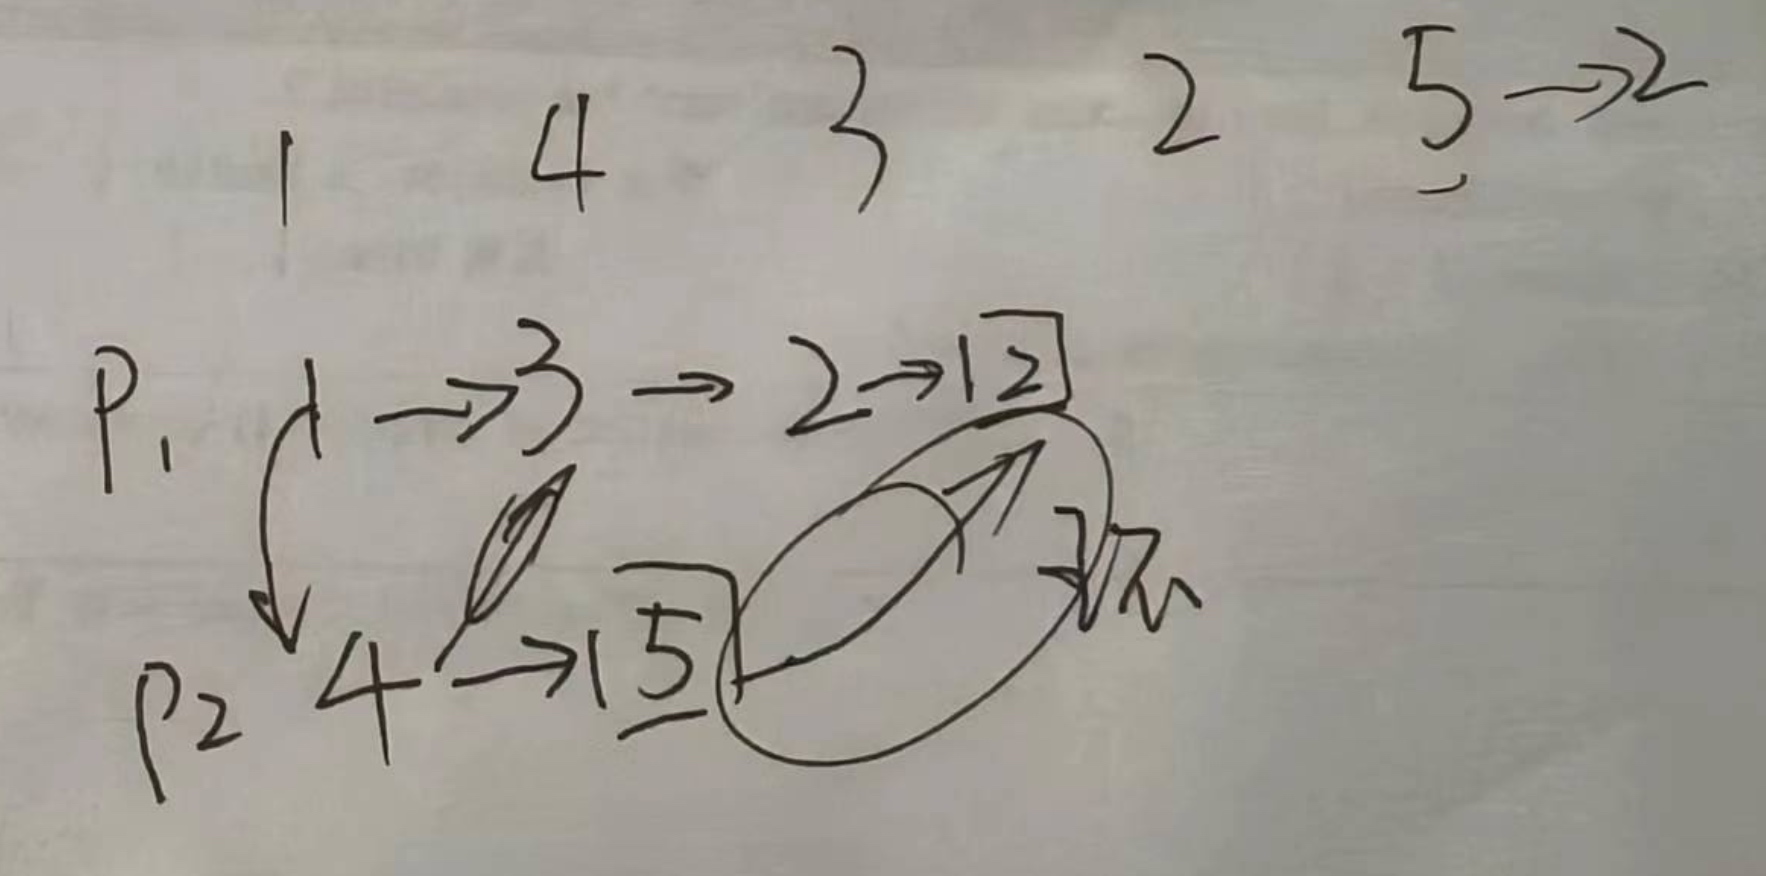 1 4 3 2 5 → 2
P1 1 → 3 → 2 → 12
P2 4 → 15
环